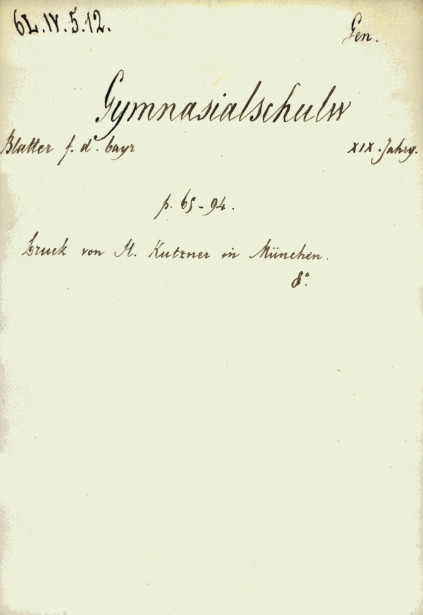 6L.IV.5.12. Gen.
Gymnasialschulw
Blatter f. d. bayr XIX. Jahrg.
p. 65-94.
Druck von H. Kutzner in München.
8°.